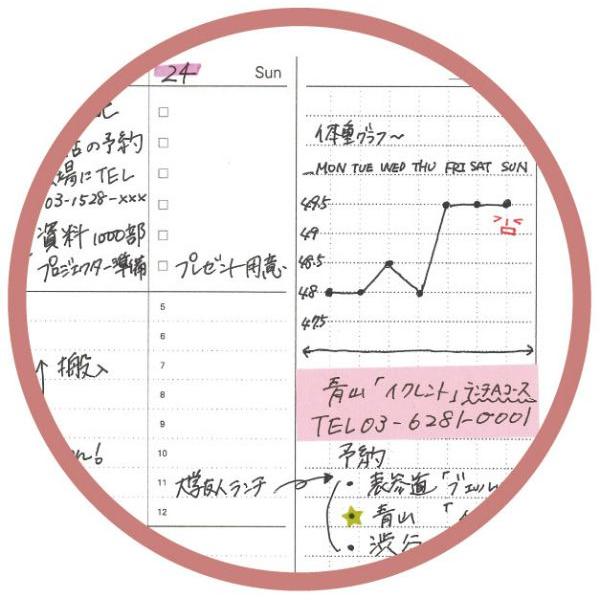 24 Sun
の予約
場にTEL
03-1528-xxx
資料1000部
プロジェクター準備
プレゼント用意
5
6
7
8
9
10
11
12
搬入
大学友人ランチ
体重グラフ〜
MON TUE WED THU FRI SAT SUN
49.5
49
48.5
48
47.5
青山「イクレント」ランチAコース
TEL 03-6281-0001
予約
・表参道「ジェル
青山「イ
・渋谷